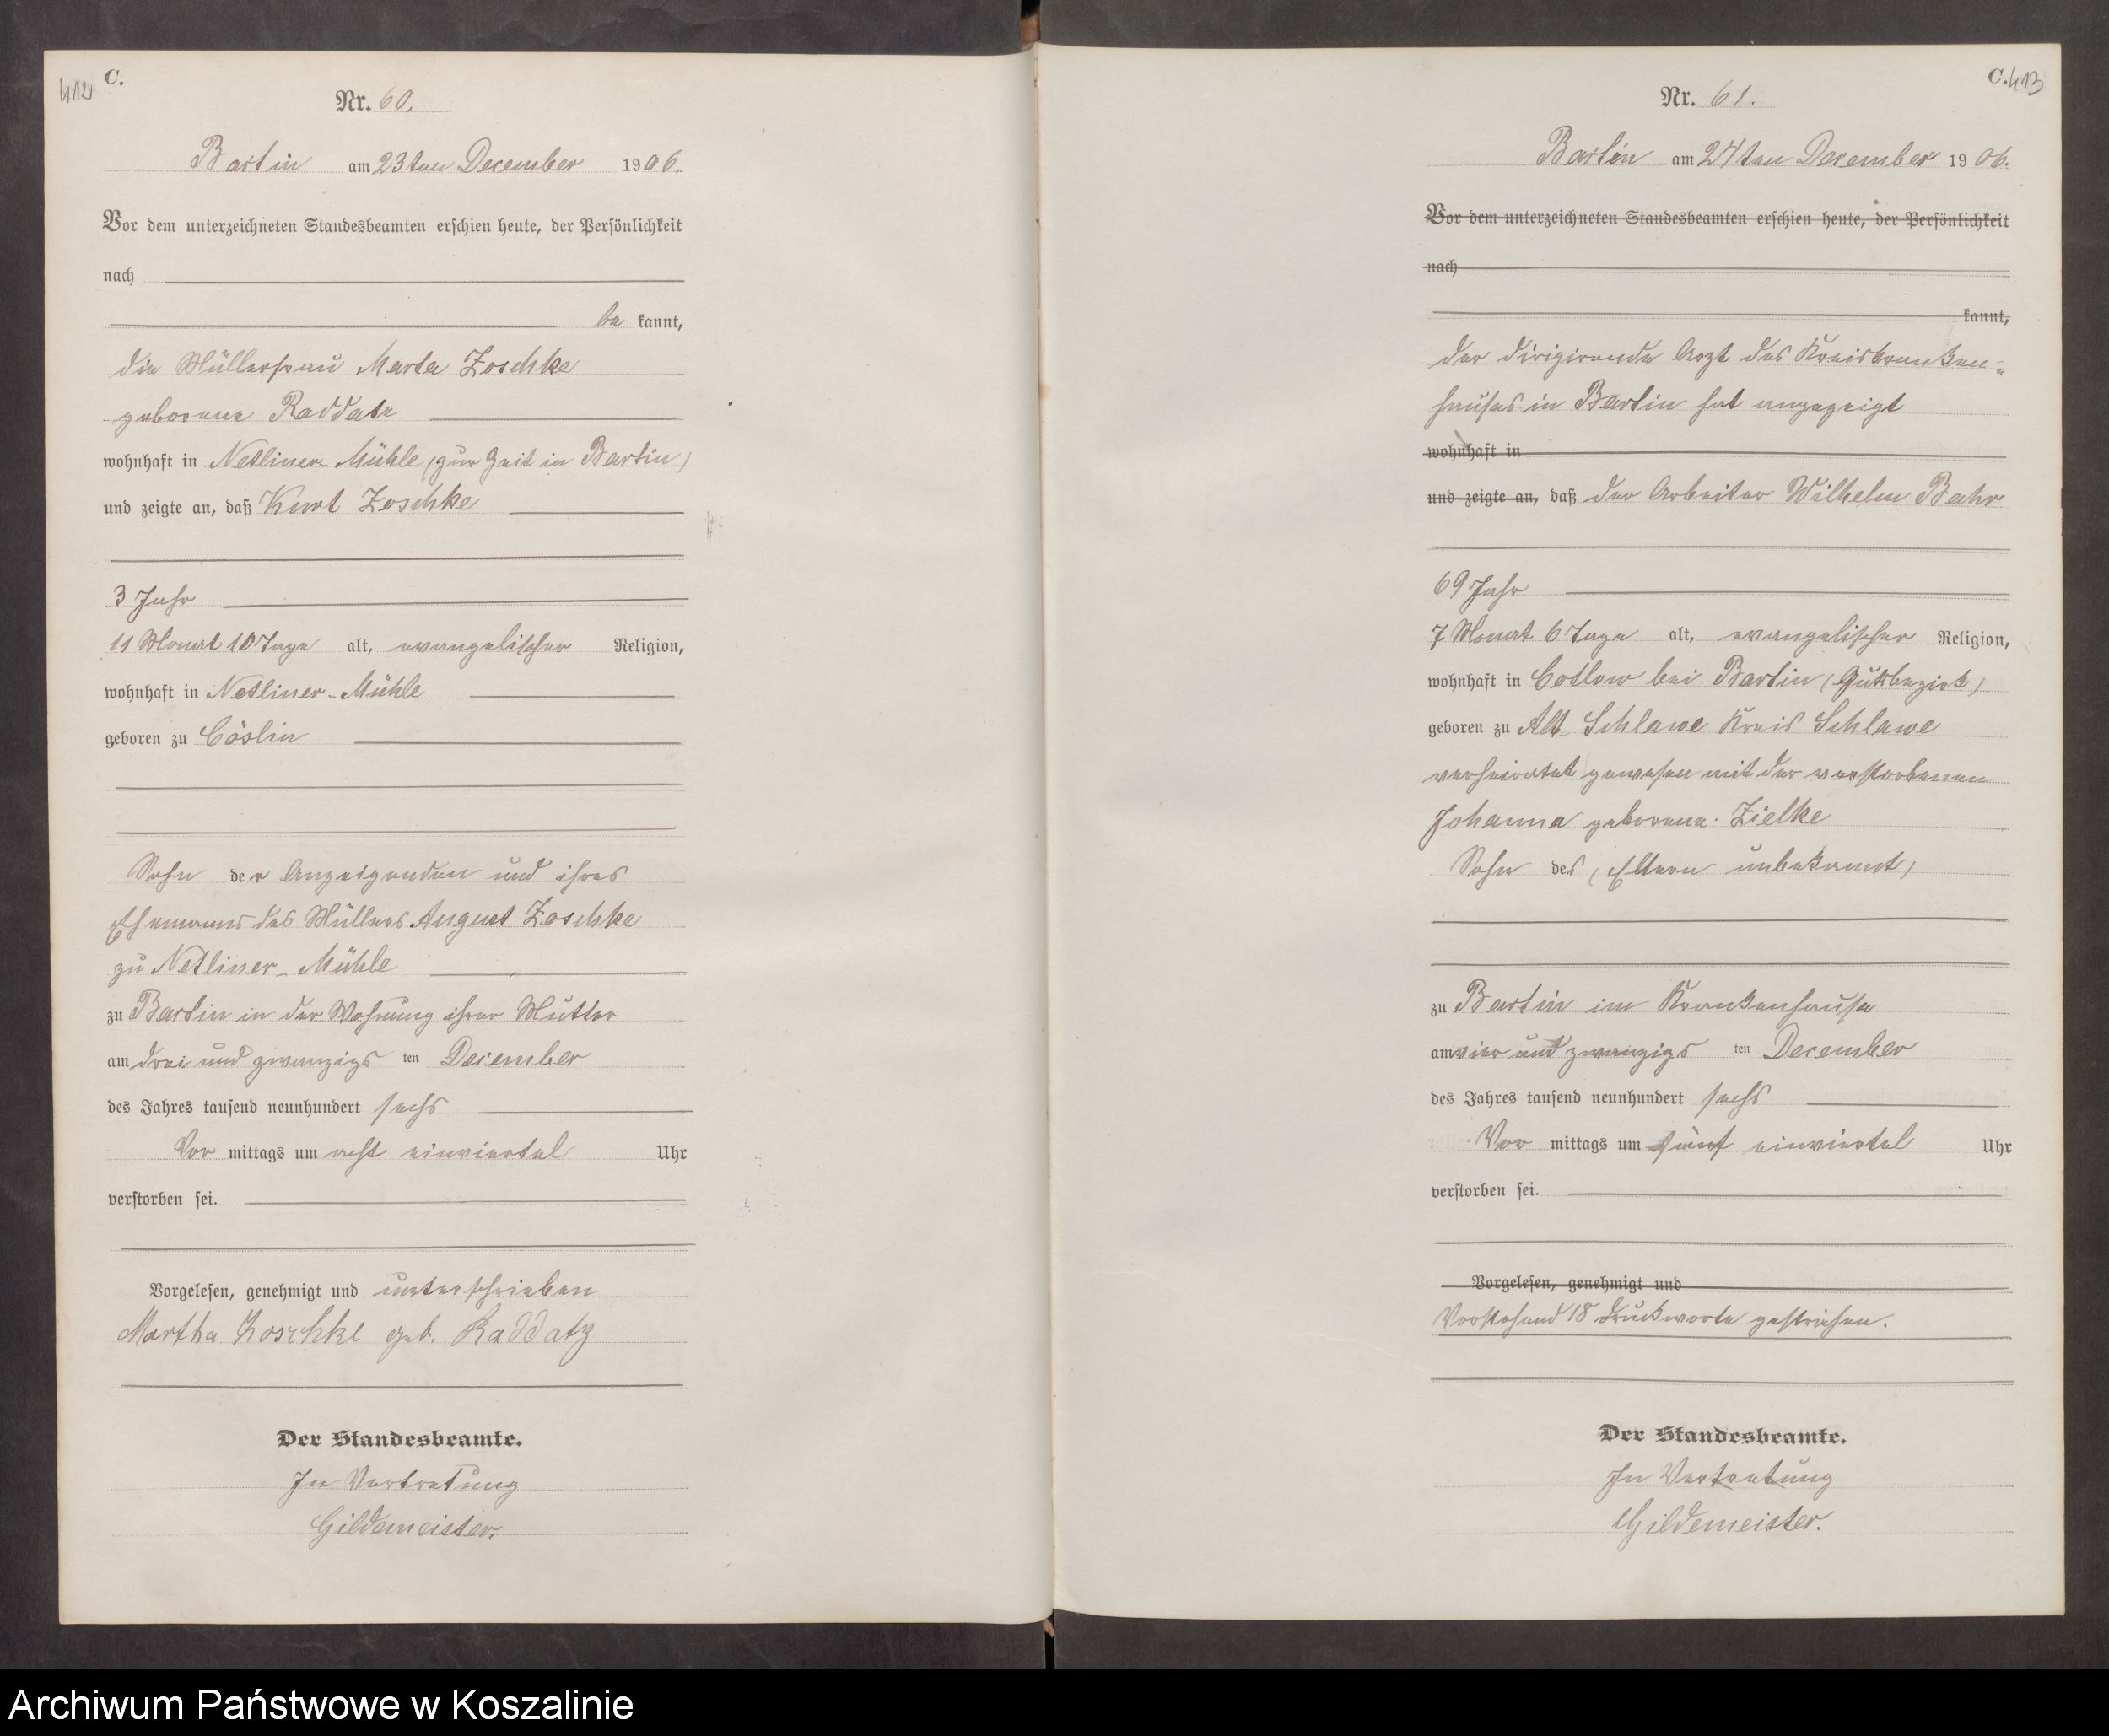 412
C.
Nr. 60.
Bartin am 23ten December 1906.
Vor dem unterzeichneten Standesbeamten erschien heute, der Persönlichkeit
nach
be kannt,
die Müllerfrau Marta Zoschke
geborene Raddatz
wohnhaft in Netliner Mühle (zur Zeit in Bartin)
und zeigte an, daß Kurt Zoschke
3 Jahr
11 Monat 10 Tage alt, evangelischer Religion,
wohnhaft in Netliner-Mühle
geboren zu Cöslin
Sohn der Anzeigenden und ihres
Ehemanns des Müllers August Zoschke
zu Netliner-Mühle
zu Bartin in der Wohnung ihrer Mutter
am drei und zwanzigs ten December
des Jahres tausend neunhundert sechs
Vor mittags um acht einviertel Uhr
verstorben sei.
Vorgelesen, genehmigt und unterschrieben
Martha Zoschke geb. Raddatz
Der Standesbeamte.
In Vertretung
Gildemeister.
C. 413
Nr. 61.
Bartin am 24ten December 1906.
Vor dem unterzeichneten Standesbeamten erschien heute, der Persönlichkeit
nach
kannt,
der dirigirende Arzt des Kreiskranken-
hauses in Bartin hat angezeigt
wohnhaft in
und zeigte an, daß der Arbeiter Wilhelm Bahr
69 Jahr
7 Monat 6 Tage alt, evangelischer Religion,
wohnhaft in Cotlow bei Bartin (Gutsbezirk)
geboren zu Alt Schlawe Kreis Schlawe
verheiratet gewesen mit der verstorbenen
Johanna geborene Zielke
Sohn des (Eltern unbekannt)
zu Bartin im Krankenhause
am vier und zwanzigs ten December
des Jahres tausend neunhundert sechs
Vor mittags um fünf einviertel Uhr
verstorben sei.
Vorgelesen, genehmigt und
Vorstehend 18 Druckworte gestrichen.
Der Standesbeamte.
In Vertretung
Gildemeister.
Archiwum Państwowe w Koszalinie